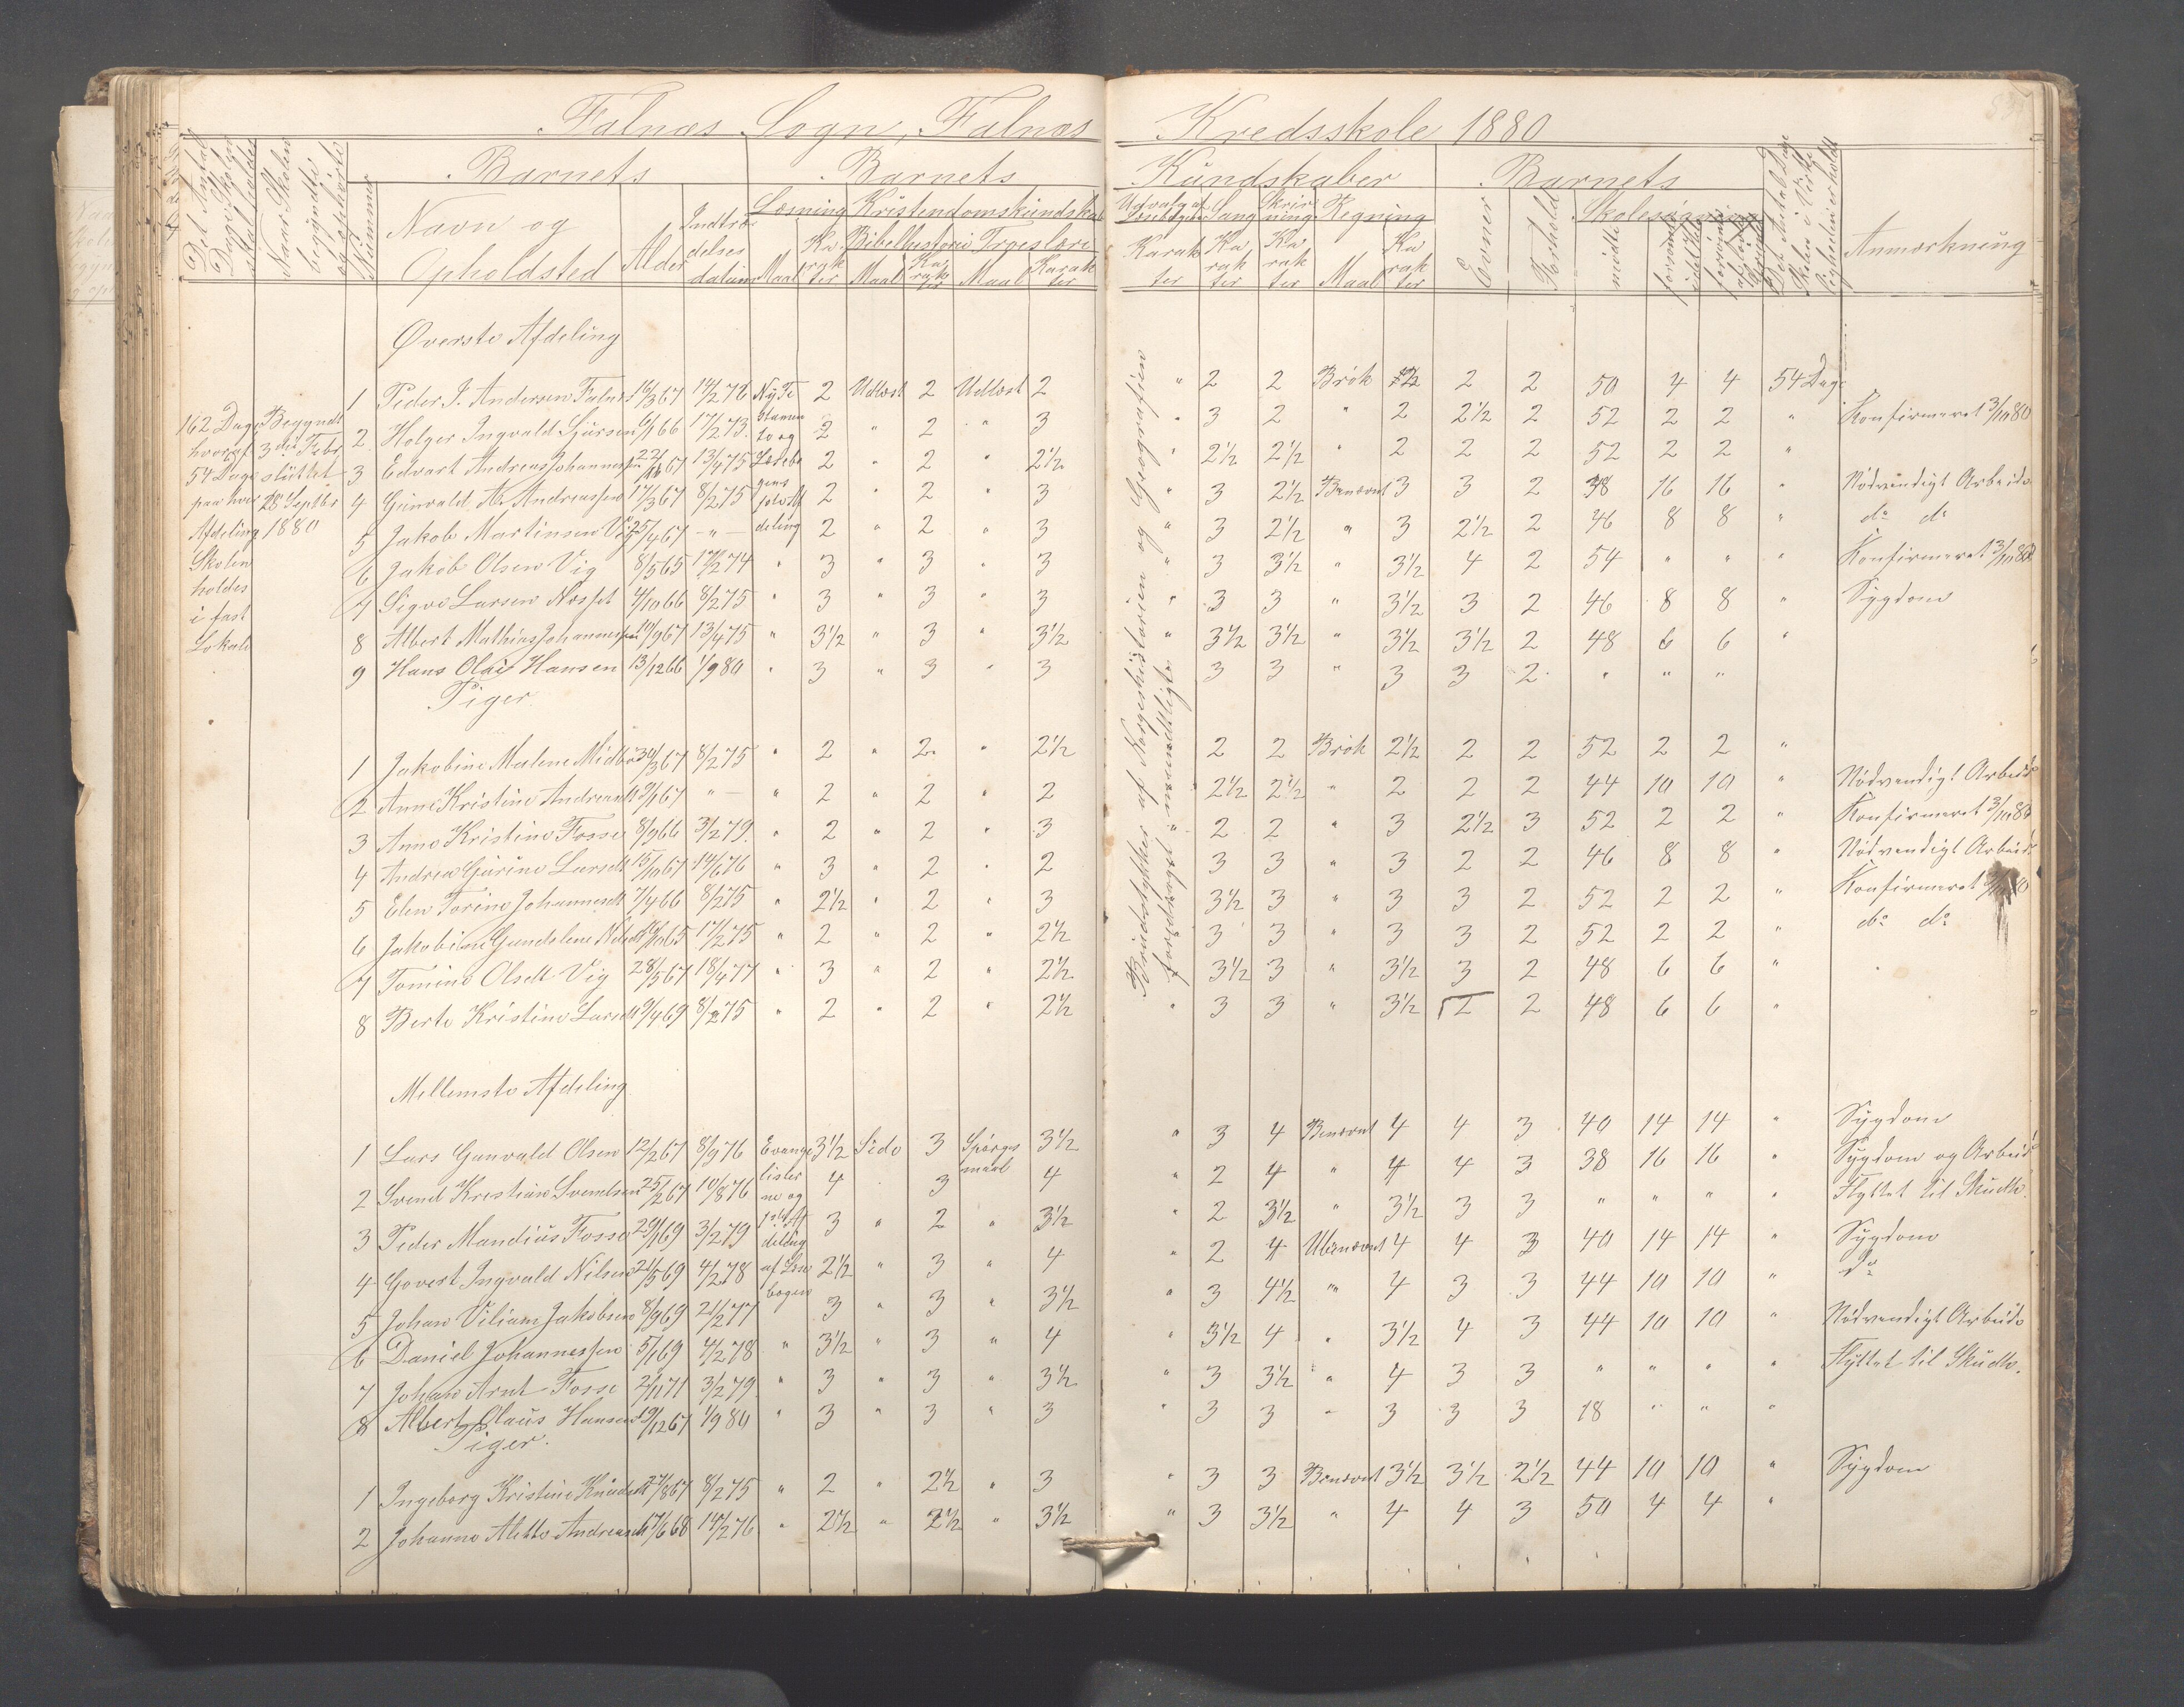 Falnæs Sogn, Falnæs Kredsskole 1880
Det Antal Dage Skolen skal holdes
Naar Skolen begyndte og ophørte
Nummer
Barnets
Navn og Opholdsted
Alder
Indtrædelses datum
Barnets Kundskaber
Læsning Kristendomskundskab
Bibelhistorie Troeslære
Maal Karakter Maal Karakter Maal Karakter
Udvalg af Læsebogen Sang Skrivning Regning
Karakter Karakter Karakter Maal Karakter
Barnets
Evner Forhold
Skolesøgning
mødte
Det Antal Dage Skolen i Virkeligheden er holdt
Anmærkning
162 Dage hvoraf 54 Dage paa hver Afdeling Skolen holdes i fast Lokale
Begyndt 3die Febr. sluttet 28 Septbr 1880
Brudstykker af Norgeshistorien og Geografien foredraget mundtligt
Øverste Afdeling
1 Peder J. Andersen Falnes 16/3 67 14/2 76 Ny Te 2 Udlæst 2 Udlæst 2 " 2 2 Brøk 2 2 50 4 4 54 Dage
2 Holger Ingvald Sjursen 6/1 66 17/2 73 2 " 2 " 3 " 3 2 " 2 2½ 2 52 2 2 " Konfirmeret 3/10 80
3 Edvart Andreas Johannessen 67 13/4 75 2 " 2 " 2½ " 2½ 2½ " 2 2 2 52 2 2 "
4 Gunvald A. Andreassen 17/3 67 8/2 75 2 " 2 " 3 " 3 2½ Benævnt 3 3 2 38 16 16 " Nødvendigt Arbeide
5 Jakob Martinsen Vig 25/4 67 — " — 2 " 2 " 3 " 3 2½ " 3 2½ 2 46 8 8 " do do
6 Jakob Olsen Vig 8/5 65 17/2 74 " 3 " 3 " 3 " 3 3½ " 3½ 4 2 54 " " " Konfirmeret 3/10 80
7 Sigva Larsen Nesset 4/10 66 8/2 75 " 3 " 3 " 3 " 3 3 " 3½ 3 2 46 8 8 " Sygdom
8 Albert Mathias Johannessen 10/9 67 13/4 75 " 3½ " 3 " 3½ " 3½ 3½ " 3½ 3½ 2 48 6 6 "
9 Hans Olai Hansen 13/12 66 1/9 80 " 3 " 3 " 3 3 3 " 3 3 2 " " "
Piger.
1 Jakobine Malene Midbø 67 8/2 75 " 2 " 2 " 2½ 2 2 Brøk 2½ 2 2 52 2 2 "
2 Anne Kristine Andreasdt 67 " — " 2 " 2 " 2 " 2½ 2½ " 2 2 2 44 10 10 " Nødvendigt Arbeide
3 Anne Kristine Fosse 8/9 66 3/2 79 " 2 " 2 " 3 2 2 " 3 2½ 3 52 2 2 " Konfirmeret 3/10 80
4 Andrea Gurine Larsdt 15/10 67 14/6 76 " 3 " 2 " 2 3 3 " 3 2 2 46 8 8 " Nødvendigt Arbeide
5 Elen Torine Johannesdt 7/4 66 8/2 75 " 2½ " 2 " 3 3½ 3 " 3 3 2 52 2 2 " Konfirmeret
6 Jakobine Gundelene 65 17/2 75 " 2 " 2 " 2½ 3 3 " 3 3 2 52 2 2 " do do
7 Tomine Olsdt Vig 28/5 67 18/4 77 " 3 " 2 " 2½ 3½ 3 " 3½ 3 2 48 6 6 "
8 Berte Kristine Larsdt 69 8/2 75 " 2 " 2 " 2½ " 3 3 " 3½ 2 2 48 6 6 "
Mellemste Afdeling
1 Lars Gunvald Olsen 12/2 67 8/9 76 Evange 3½ Side 3 Spørgs 3½ " 3 4 Benævnt 4 4 3 40 14 14 " Sygdom
2 Svend Kristian Svendsen 25/2 67 10/8 76 lister 4 3 maal 4 " 2 4 " 4 4 3 38 16 16 " Sygdom og Arbeide
3 Peder Mandius Fosse 29/1 69 3/2 79 3 " 2 " 3½ " 2 3½ " 3½ 3 3 " " " " Flyttet til Skudh.
4 Govert Ingvald Nilsen 21/5 69 4/2 78 2½ " 3 " 4 " 2 4 Ubenævnt 4 4 3 40 14 14 " Sygdom
5 Johan Viliam Jakobsen 8/9 69 21/2 77 bogen 3 " 3 " 3½ " 3 4½ " 4 3 3 44 10 10 " do
6 Daniel Johannessen 5/1 69 4/2 78 " 3½ " 3 " 4 " 3½ 4 " 3½ 4 3 44 10 10 " Nødvendigt Arbeide
7 Johan Arnt Fosse 2/11 71 3/2 79 " 3 " 3 " 3½ " 3 3½ " 4 3 3 " " " " Flyttet til Skudh.
8 Albert Olaus Hansen 19/12 67 1/9 80 " 3 " 3 " 3 " 3 3 " 3 3 3 18 " " "
Piger.
1 Ingeborg Kristine Knudsdt 27/8 67 8/2 75 " 2 " 2½ " 3 " 3 3 Benævnt 3½ 3½ 2½ 44 10 10 " Sygdom
2 Johanne Alette Andreasdt 68 14/2 76 " 2½ " 2½ " 3½ " 3 3½ " 4 4 3 50 4 4 "